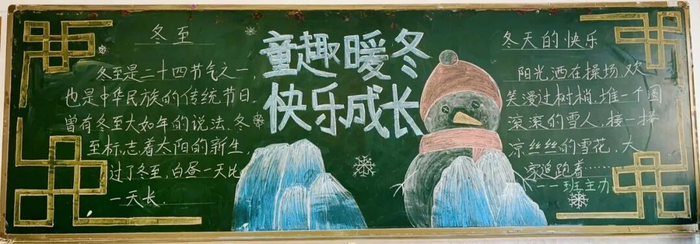 冬至
冬至是二十四节气之一，
也是中华民族的传统节日，
曾有冬至大如年的说法。冬
至标志着太阳的新生，
过了冬至，白昼一天比
一天长。
童趣暖冬
快乐成长
冬天的快乐
阳光洒在操场，欢
笑漫过树梢，堆一个圆
滚滚的雪人，接一捧
凉丝丝的雪花，大
家追跑着……
——班主办